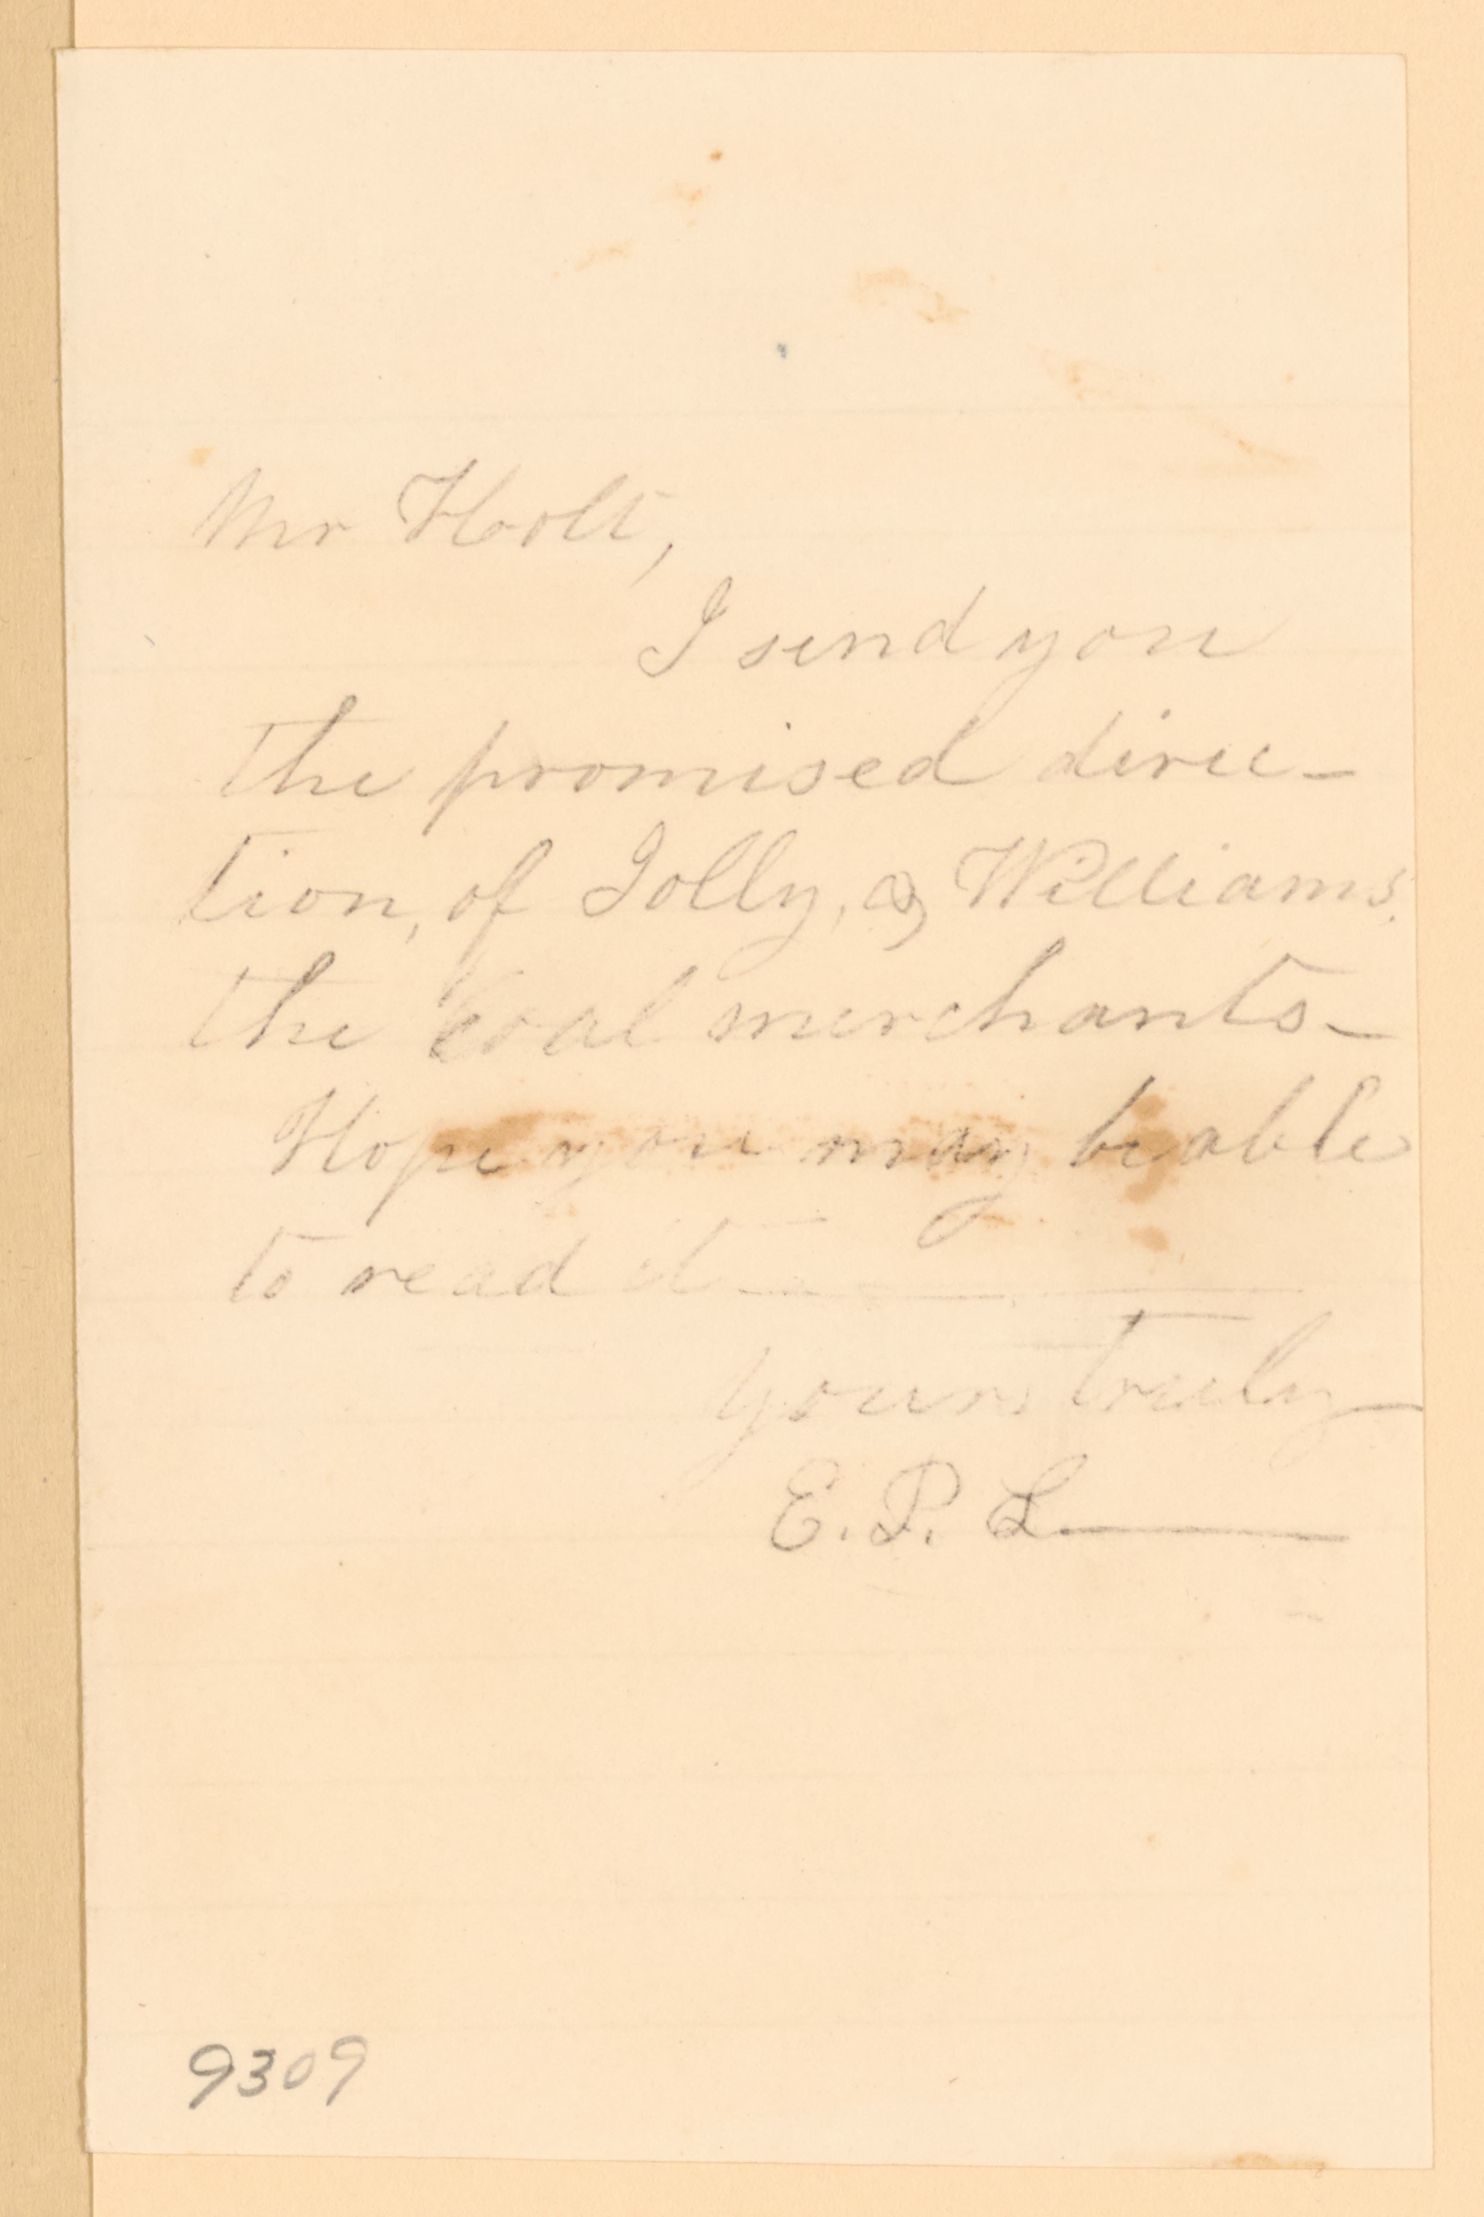 Mr Holt,
I send you
the promised direc-
tion, of Jolly, & Williams.
the Coal merchants_
Hope you may be able
to read it
yours truly
E. P. L
9309